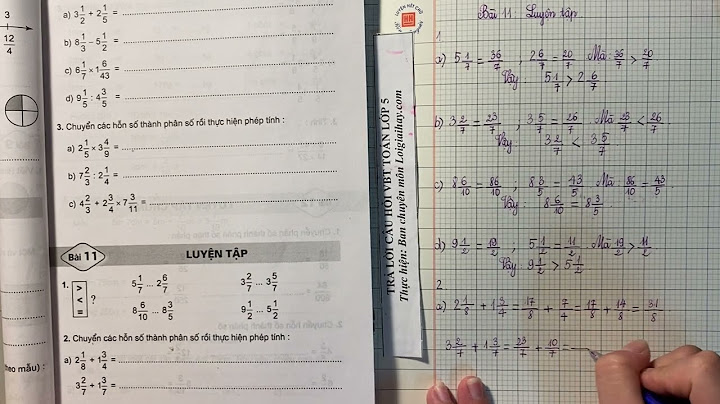 3
12/4
a) 3 1/2 + 2 1/5 =
b) 8 1/3 - 5 1/2 =
c) 6 1/7 × 1 6/43 =
d) 9 1/5 : 4 3/5 =
3. Chuyển các hỗn số thành phân số rồi thực hiện phép tính :
a) 2 1/5 × 3 4/9 =
b) 7 2/3 : 2 1/4 =
c) 4 2/3 + 2 3/4 × 7 3/11 =
Bài 11 LUYỆN TẬP
1. > < = ?
5 1/7 ... 2 6/7 3 2/7 ... 3 5/7
8 6/10 ... 8 3/5 9 1/2 ... 5 1/2
2. Chuyển các hỗn số thành phân số rồi thực hiện phép tính :
a) 2 1/8 + 1 3/4 =
3 2/7 + 1 3/7 =
theo mẫu) :
TRẢ LỜI CÂU HỎI VBT TOÁN LỚP 5
Thực hiện: Ban chuyên môn Loigiaihay.com
Bài 11: Luyện tập
1
a) 5 1/7 = 36/7 ; 2 6/7 = 20/7 Mà 36/7 > 20/7
Vậy 5 1/7 > 2 6/7
b) 3 2/7 = 23/7 ; 3 5/7 = 26/7 Mà 23/7 < 26/7
Vậy 3 2/7 < 3 5/7
c) 8 6/10 = 86/10 ; 8 3/5 = 43/5 Mà 86/10 = 43/5
Vậy : 8 6/10 = 8 3/5
d) 9 1/2 = 19/2 ; 5 1/2 = 11/2 Mà 19/2 > 11/2
Vậy : 9 1/2 > 5 1/2
2
a) 2 1/8 + 1 3/4 = 17/8 + 7/4 = 17/8 + 14/8 = 31/8
3 2/7 + 1 3/7 = 23/7 + 10/7 =